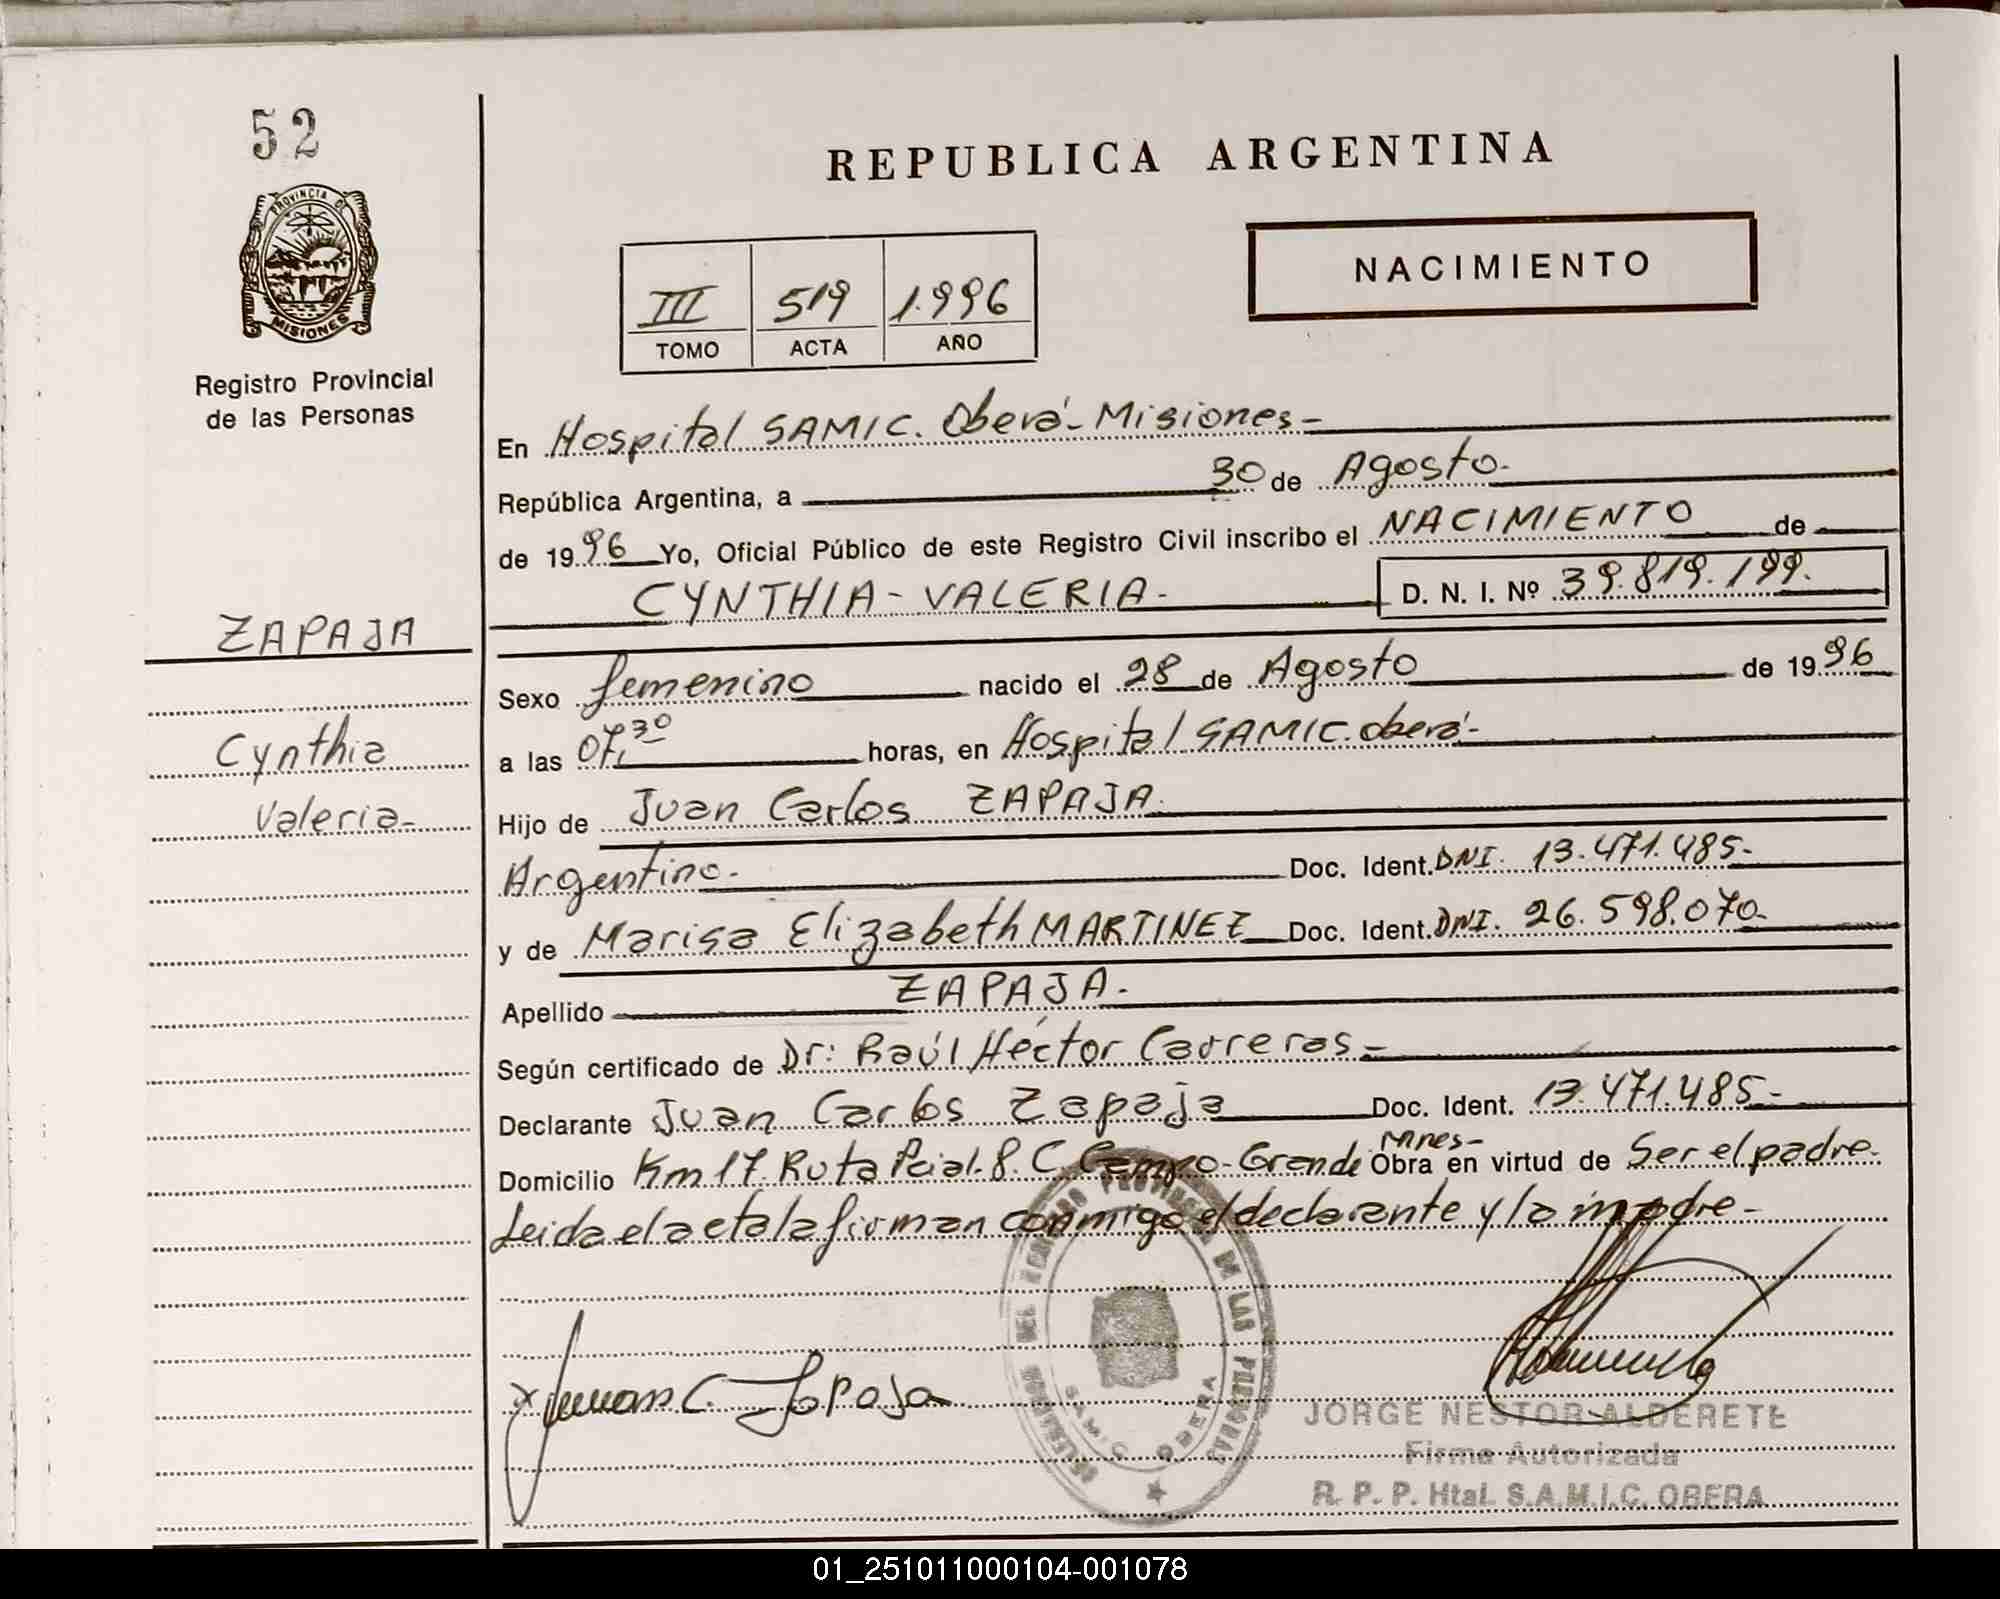 52
PROVINCIA DE
MISIONES
Registro Provincial
de las Personas
REPUBLICA ARGENTINA
NACIMIENTO
III 519 1.996
TOMO ACTA AÑO
En Hospital SAMIC. Oberá - Misiones -
República Argentina, a 30 de Agosto.
de 1996 Yo, Oficial Público de este Registro Civil inscribo el NACIMIENTO de
CYNTHIA - VALERIA - D. N. I. Nº 39.819.199.
ZAPAJA
Cynthia
Valeria -
Sexo femenino nacido el 28 de Agosto de 1996
a las 07,30 horas, en Hospital SAMIC. Oberá -
Hijo de Juan Carlos ZAPAJA.
Argentino. Doc. Ident. DNI. 13.471.485-
y de Marisa Elizabeth MARTINEZ Doc. Ident. DNI. 26.598.070
Apellido ZAPAJA.
Según certificado de Dr: Raúl Héctor Carreras -
Declarante Juan Carlos Zapaja Doc. Ident. 13.471.485-
Domicilio Km 17. Ruta Pcial. 8. C. Campo-Grande Mnes- Obra en virtud de Ser el padre.
Leida el acta la firman conmigo el declarante y la madre -
x Juan C. Zapaja
REGISTRO PROVINCIAL DE LAS PERSONAS
S.A.M.I.C. OBERA
JORGE NESTOR ALDERETE
Firma Autorizada
R. P. P. Htal. S.A.M.I.C. OBERA
01_251011000104-001078